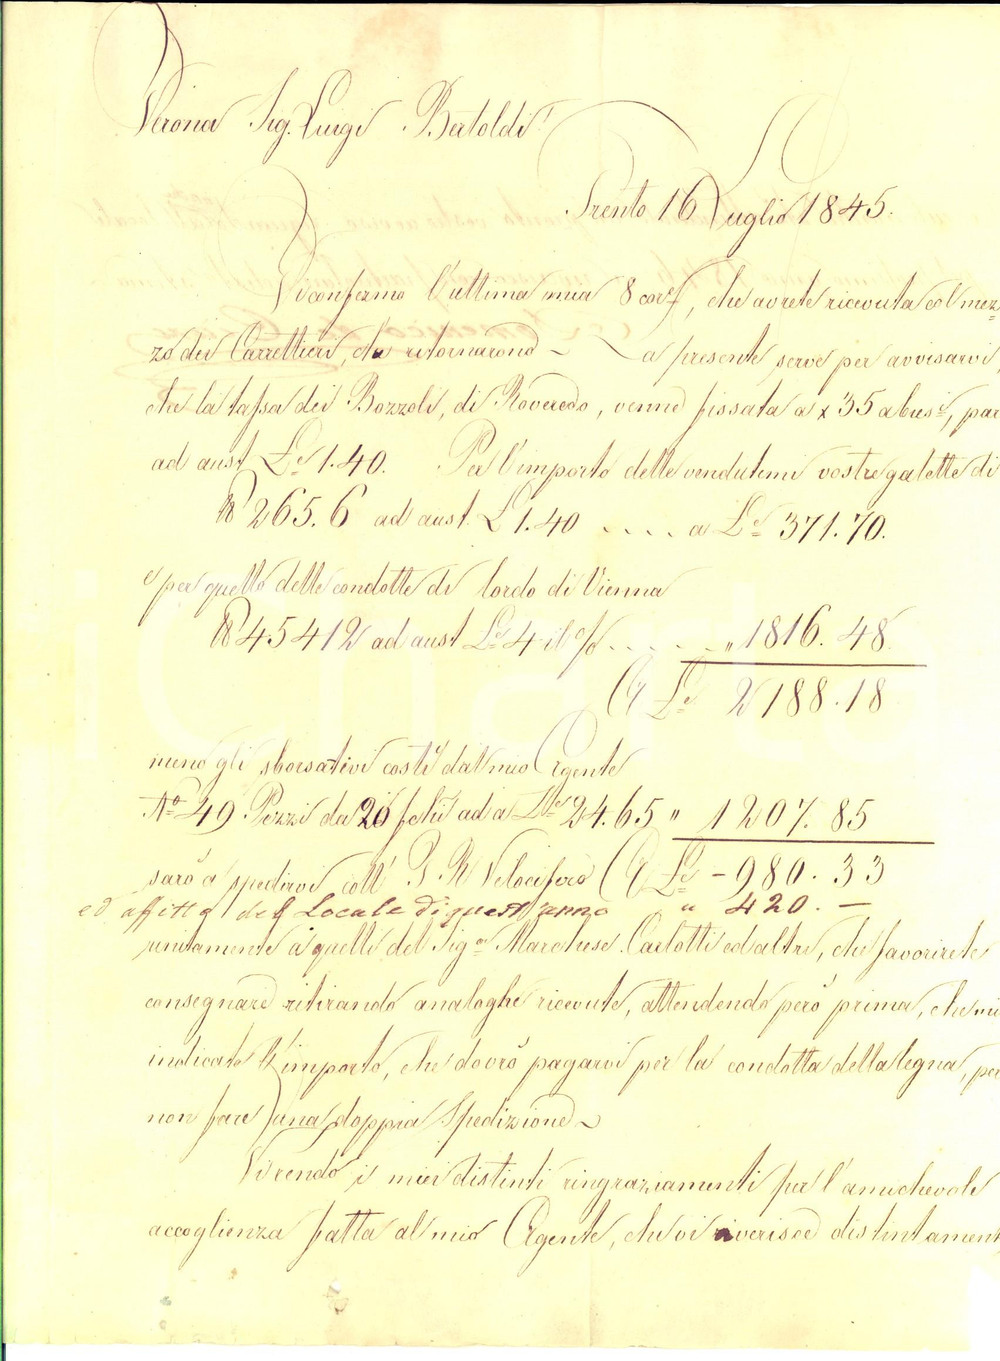 Verona Sig. Luigi Bertoldi
Trento 16 Luglio 1845.
Vi confermo l'ultima mia 8 corr, che avrete ricevuta col mez=
zo dei Carrettieri, che ritornarono ~ La presente serve per avvisarvi,
che la tassa dei Bozzoli, di Roveredo, venne fissata a x 35 abusi, par
ad aust Le 1.40. Per l'importo delle vendutemi vostre galette di
℔ 265.6 ad aust. L 1.40 .... a Le 371.70.
e per quello delle condotte di lordo di Vienna
℔ 45412 ad aust Le 4 il % ..... " 1816.48
Le 2188.18
meno gli sborsativi costì dal mio Agente
No 49 Pezzi da 20 ad a Le 24.65 " 1207.85
sarò a spedirvi coll' I R Velocifero Le - 980.33
ed affitto del Locale di quest'anno " 420. —
unitamente a quelli del Sigr Marchese Carlotti ed altri, che favorirete
consegnare ritirando analoghe ricevute, attendendo però prima, che mi
indicate l'importo, che dovrò pagarvi per la condotta della legna, per
non fare una doppia Spedizione ~
Vi rendo i miei distinti ringraziamenti per l'amichevole
accoglienza fatta al mio Agente, che vi riverisce distintament